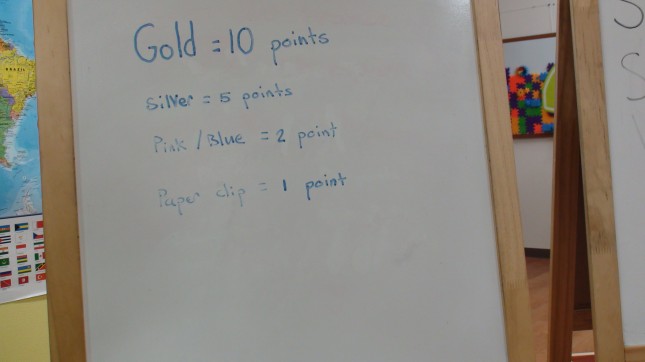 Gold = 10 points
Silver = 5 points
Pink / Blue = 2 point
Paper clip = 1 point